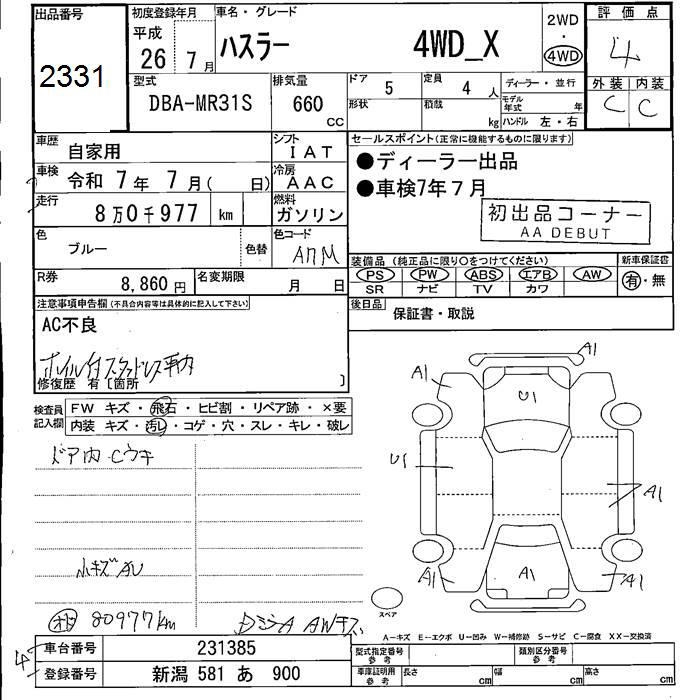 出品番号
2331
初度登録年月
平成
26 7月
車名・グレード
ハスラー 4WD_X
2WD
・
4WD
評価点
4
外装 内装
C C
型式
DBA-MR31S
排気量
660 CC
ドア 5
定員 4 人
形状
積載 kg
ディーラー・並行
モデル年式 年
ハンドル 左・右
車歴 自家用
シフト IAT
車検 令和 7年 7月( 日)
冷房 AAC
走行 8万0千977 km
燃料 ガソリン
色 ブルー
色替
色コード
R券 8,860円
名変期限 月 日
セールスポイント(正常に機能するものに限ります)
●ディーラー出品
●車検7年7月
初出品コーナー
AA DEBUT
装備品(純正品に限り○をつけてください)
新車保証書
PS PW ABS エアB AW
SR ナビ TV カワ
有・無
後日品 保証書・取説
注意事項申告欄(不具合内容等は具体的に記入して下さい)
AC不良
ホイル付スタッドレス車内
修復歴 有〔箇所 〕
検査員記入欄
FW キズ・飛石・ヒビ割・リペア跡・×要
内装 キズ・汚レ・コゲ・穴・スレ・キレ・破レ
ドア内 Cウキ
小キズ AU
80977km
AWキズ
A1
A1
U1
U1
A1
A1
A1
A1
スペア
A-キズ E-エクボ U-凹み W-補修跡 S-サビ C-腐食 XX-交換済
車台番号 231385
登録番号 新潟 581 あ 900
型式指定番号 参考
類別区分番号 参考
車庫証明用 参考
長さ cm
幅 cm
高さ cm